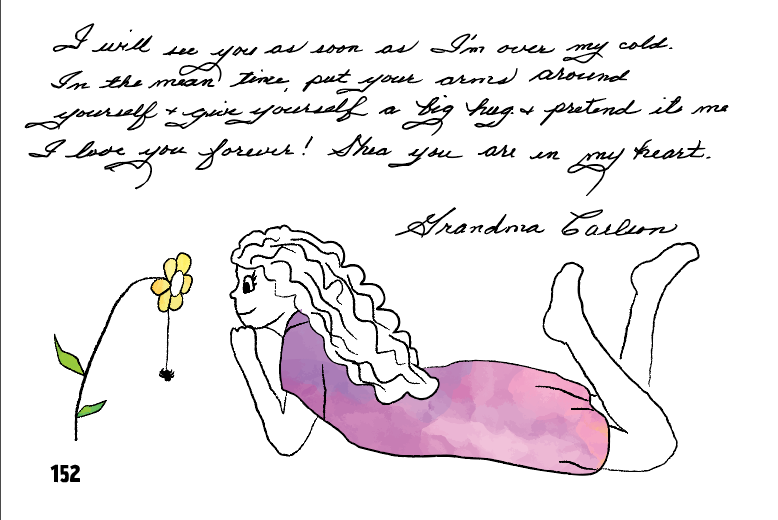 I will see you as soon as I'm over my cold.
In the mean time, put your arms around
yourself + give yourself a big hug. + pretend its me
I love you forever! Shea you are in my heart.
Grandma Carlson
152